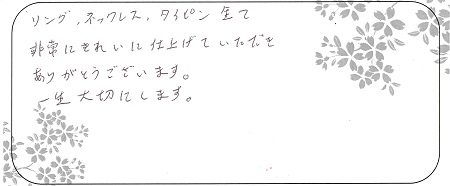 リング，ネックレス，タイピン全て
非常にきれいに仕上げていただき
ありがとうございます。
一生大切にします。